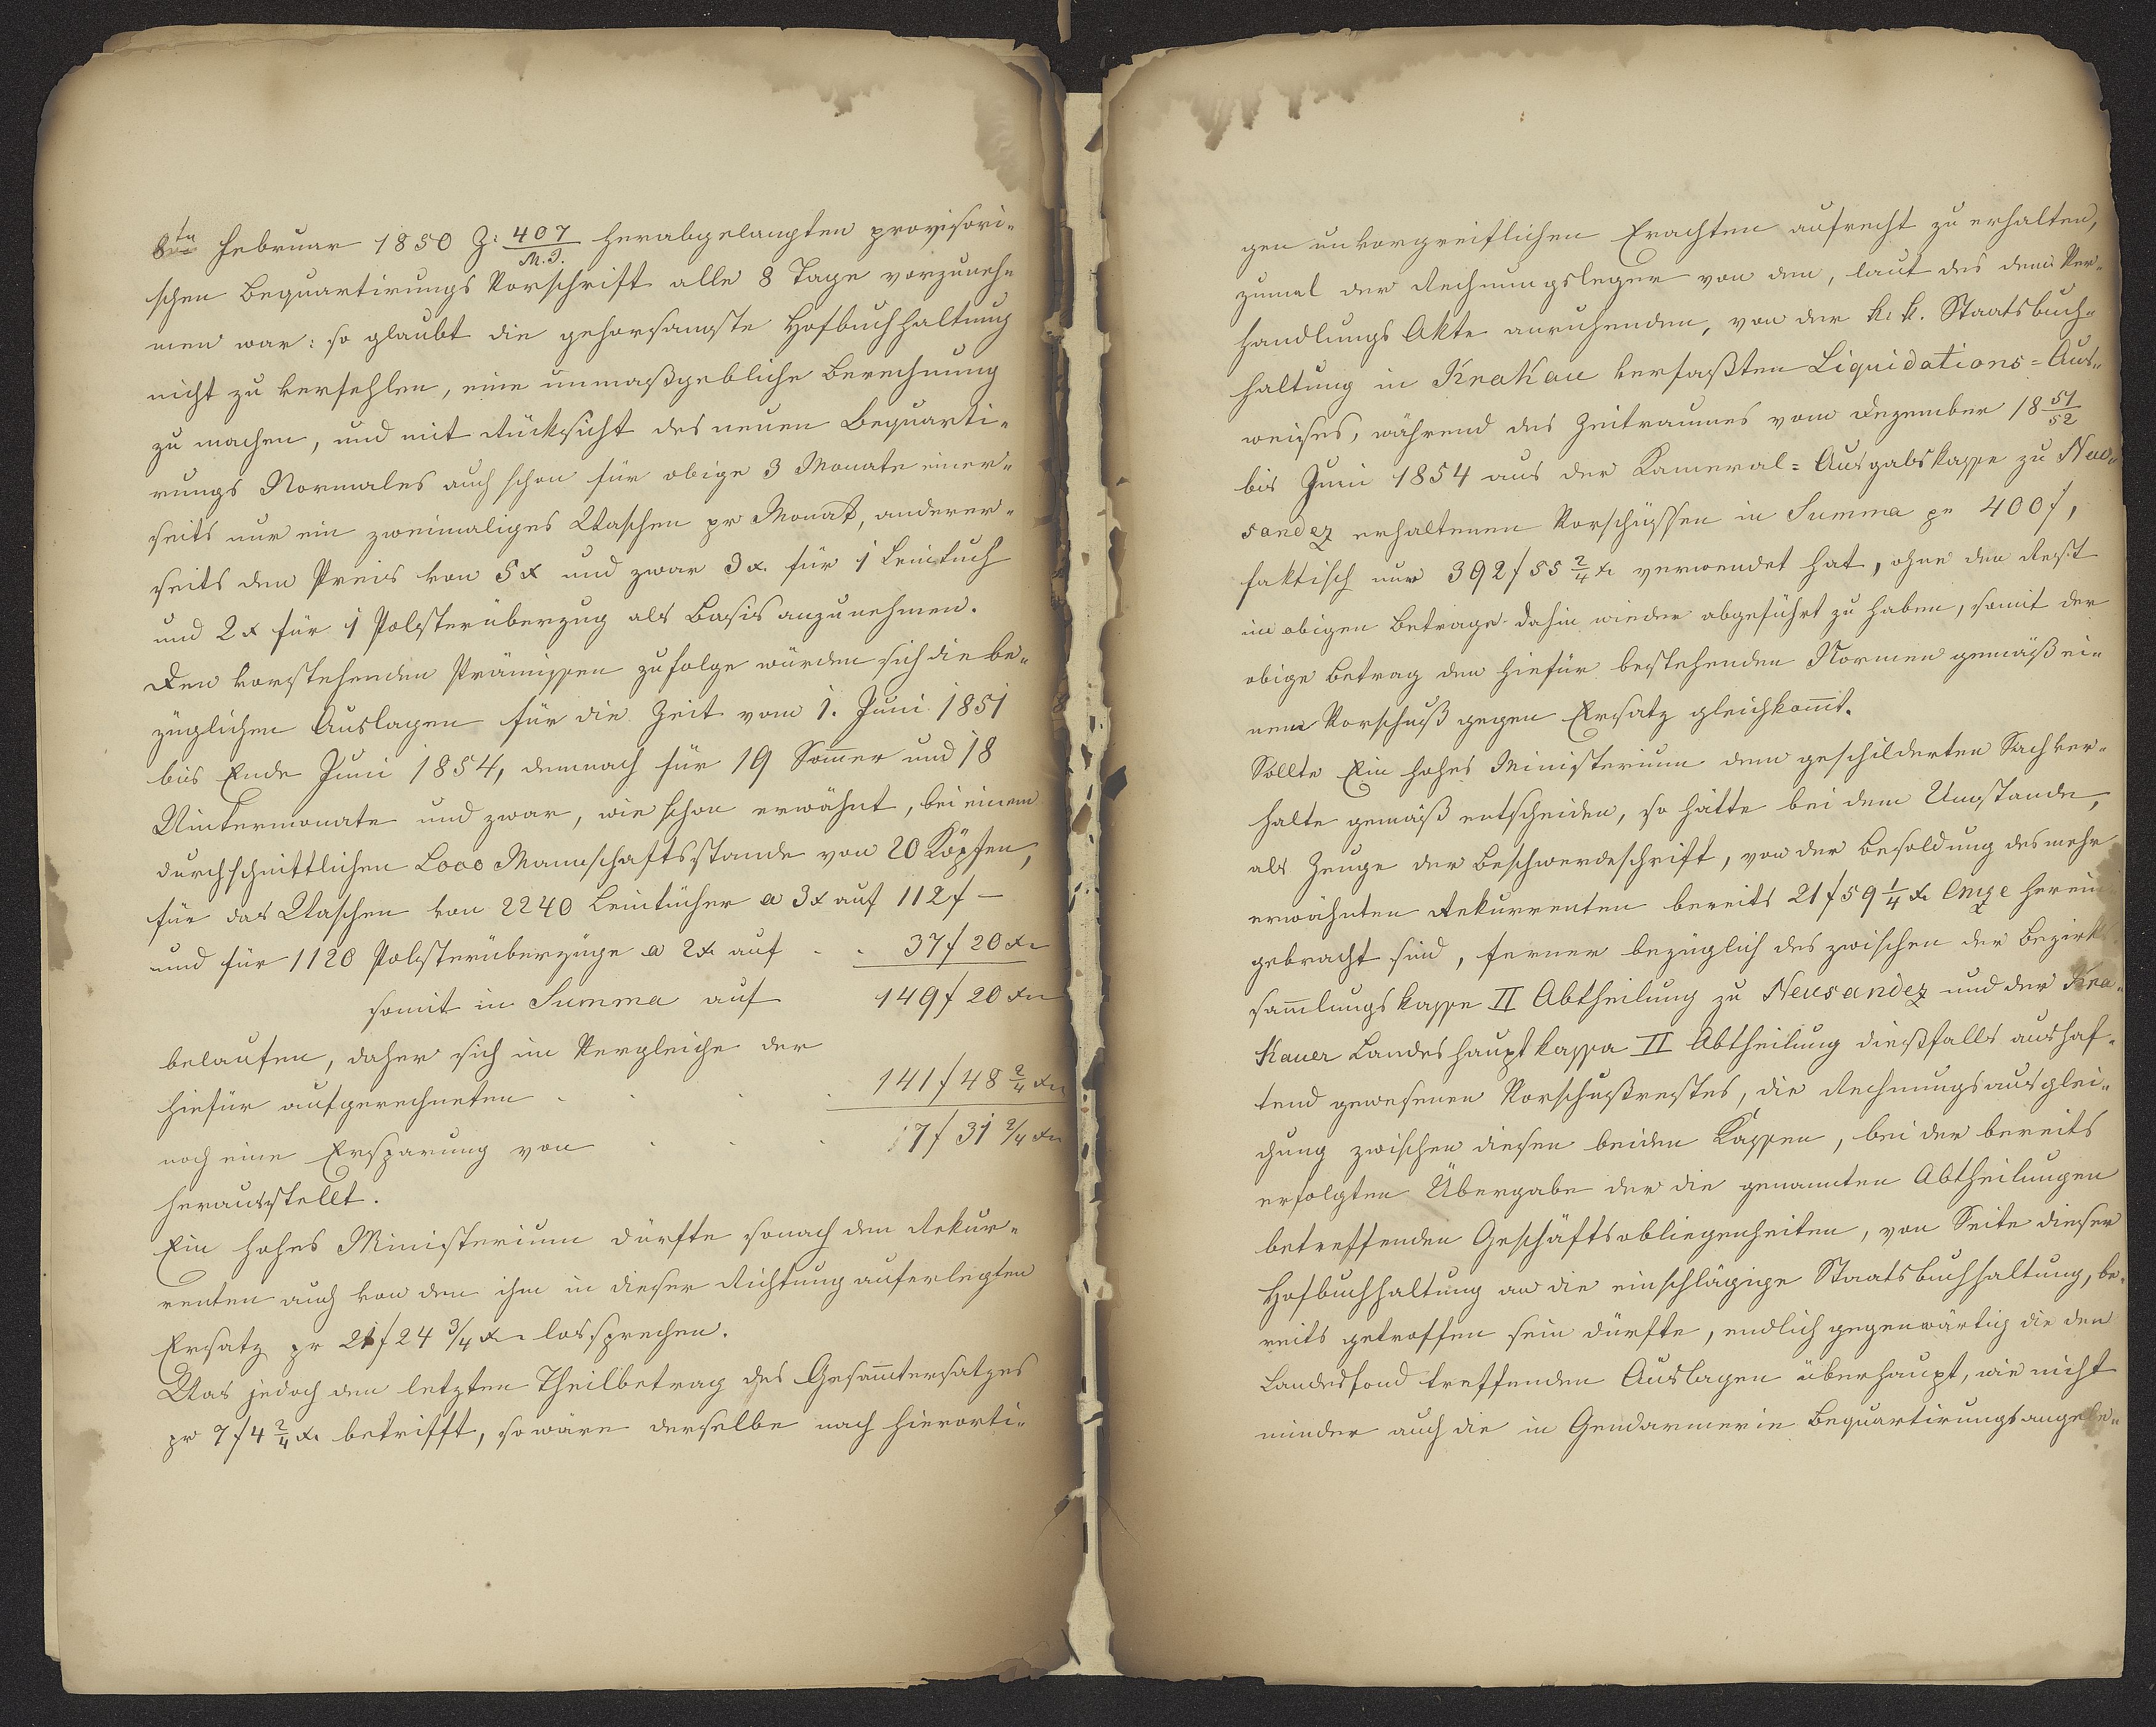 8ten Februar 1850 Z: 407/M.I. herabgelangten provisori-
schen Bequartirungs Vorschrift alle 8 Tage vorzuneh-
men war: so glaubt die gehorsamste Hofbuchhaltung
nicht zu verfehlen, eine unmaßgebliche Berechnung
zu machen, und mit Rücksicht des neuen Bequarti-
rungs Normales auch schon für obige 3 Monate einer-
seits nur ein zweimaliges Waschen pr Monat, anderer-
seits den Preis von 5x und zwar 3x. für 1 Leintuch
und 2x für 1 Polsterüberzug als Basis anzunehmen.
Den vorstehenden Prämissen zufolge würden sich die be-
züglichen Auslagen für die Zeit vom 1. Juni 1851
bis Ende Juni 1854, demnach für 19 Som̄er und 18
Wintermonate und zwar, wie schon erwähnt, bei einem
durchschnittlichen Loco Mannschaftsstande von 20 Köpfen,
für das Waschen von 2240 Leintücher a 3x auf 112f —
und für 1120 Polsterüberzüge a 2x auf . . 37f 20xr
somit in Summa auf 149f 20xr
belaufen, daher sich im Vergleiche der
hiefür aufgerechneten . . . . 141f 48 2/4 xr
noch eine Ersparung von . . . 7f 31 2/4 xr
herausstellt.
Ein hohes Ministerium dürfte sonach den Rekur-
renten auch von den ihm in dieser Richtung auferlegten
Ersatz pr 21f 24 3/4 xr lossprechen.
Was jedoch den letzten Theilbetrag des Gesam̄tersatzes
pr 7f 4 2/4 x. betrifft, so wäre derselbe nach hierorti-
gen unvorgreiflichen Erachten aufrecht zu erhalten,
zumal der Rechnungsleger von den, laut des dem Ver-
handlungs Akte anruhenden, von der k. k. Staatsbuch-
haltung in Krakau verfaßten Liquidations=Aus-
weises, während des Zeitraumes vom Dezember 18 51/52
bis Juni 1854 aus der Kameral=Ausgabskasse zu Neu-
sandez erhaltenen Vorschüssen in Summa pr 400f,
faktisch nur 392f 55 2/4 x verwendet hat, ohne den Rest
im obigen Betrage dahin wieder abgeführt zu haben, somit der
obige Betrag den hiefür bestehenden Normen gemäß ei-
nem Vorschuß gegen Ersatz gleichkom̄t.
Sollte Ein hohes Ministerium dem geschilderten Sachver-
halte gemäß entscheiden, so hätte bei dem Umstande,
als Zeuge der Beschwerdeschrift, von der Besoldung des mehr
erwähnten Rekurrenten bereits 21f 59 1/4 x. herein
gebracht sind, ferner bezüglich des zwischen der Bezirks
sam̄lungskasse II Abtheilung zu Neusandez und der Kra-
kauer Landeshauptkassa II Abtheilung dießfalls aushaf-
tend gewesenen Vorschußrestes, die Rechnungsausglei-
chung zwischen diesen beiden Kassen, bei der bereits
erfolgten Übergabe der die genannten Abtheilungen
betreffenden Geschäftsobliegenheiten, von Seite dieser
Hofbuchhaltung an die einschlägige Staatsbuchhaltung, be-
reits getroffen sein dürfte, endlich gegenwärtig die den
Landesfond treffenden Auslagen überhaupt, wie nicht
minder auch die in Gendarmerie Bequartirungsangele-